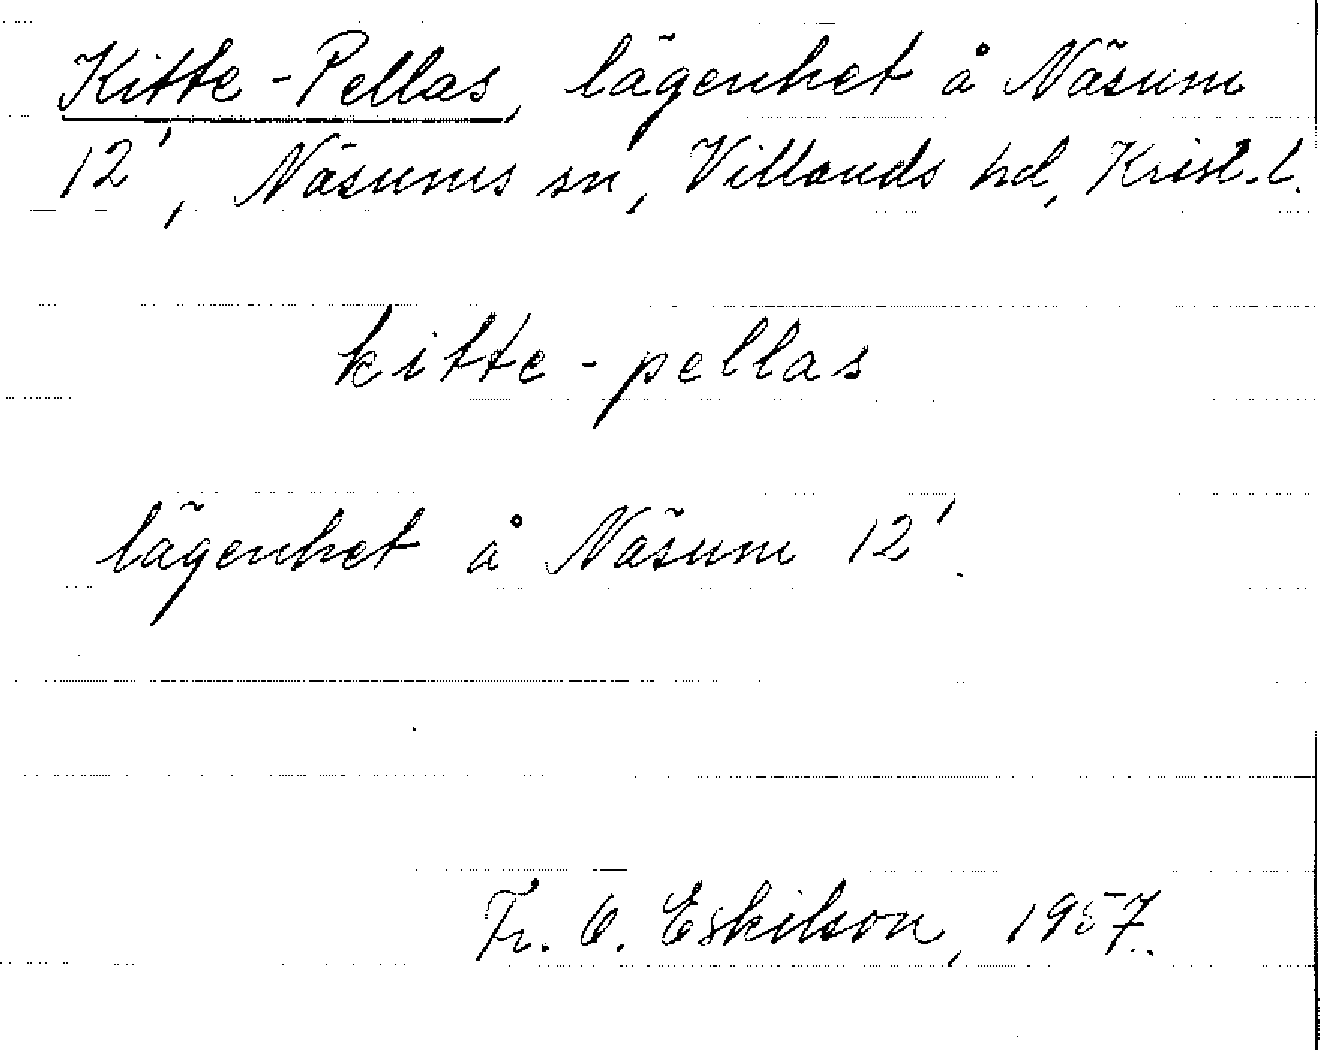 Kitte-Pellas, lägenhet å Näsum
12', Näsums sn, Villands hd, Krist. l.
kitte-pellas
lägenhet å Näsum 12'.
Fr. O. Eskilson, 1957.